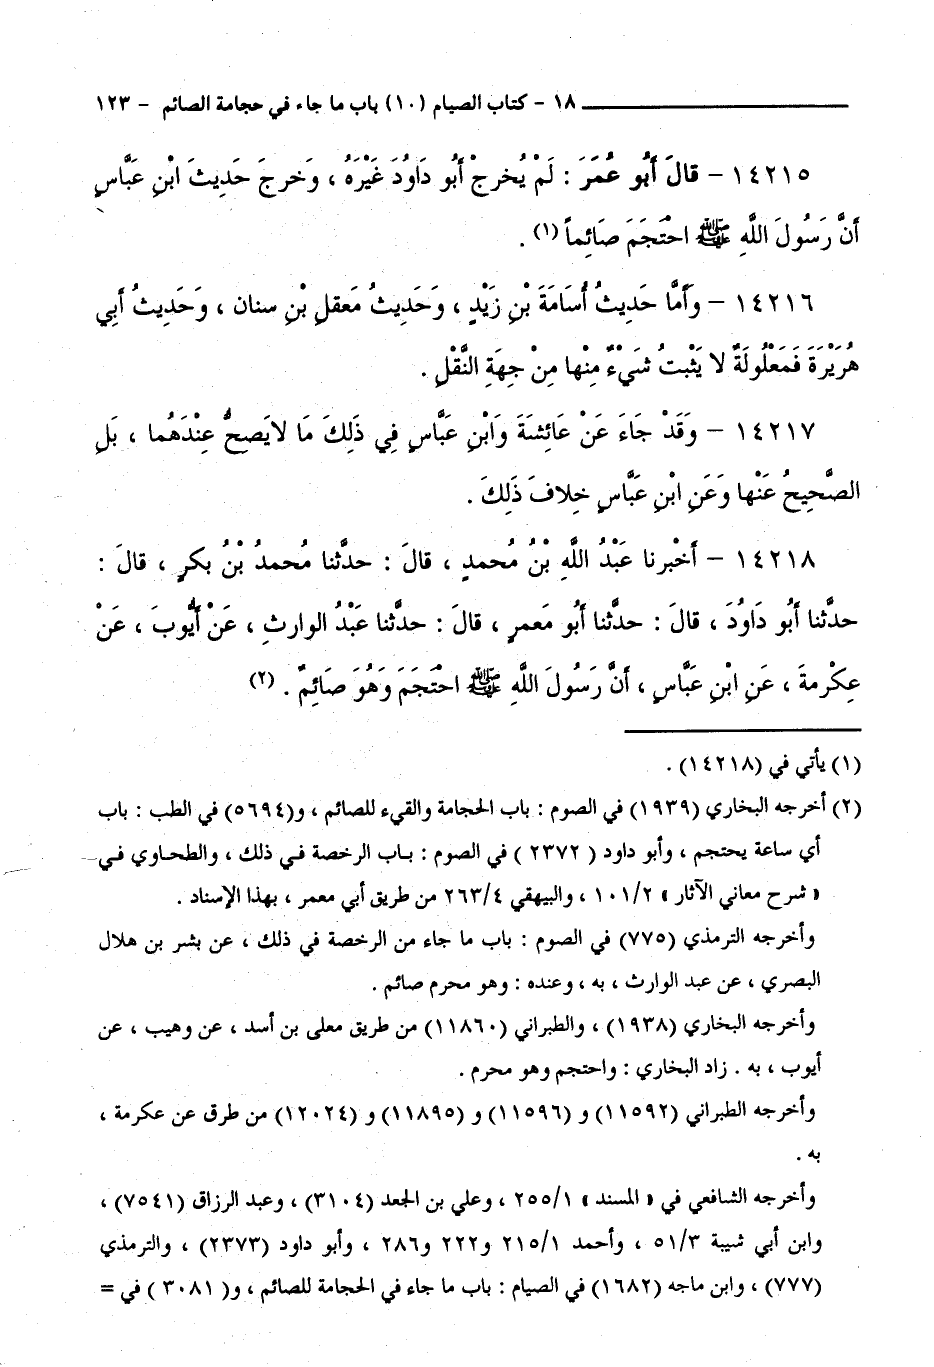 ١٨ - كتاب الصيام (١٠) باب ما جاء في حجامة الصائم - ١٢٣
١٤٢١٥ - قالَ أَبُو عُمَرَ : لَمْ يُخرجْ أَبُو دَاوُدَ غَيْرَهُ ، وَخرجَ حَدِيثَ ابْنِ عَبَّاسٍ
أَنَّ رَسُولَ اللَّهِ ﷺ احْتَجَمَ صَائِماً (١) .
١٤٢١٦ - وَأَمَّا حَدِيثُ أُسَامَةَ بْنِ زَيْدٍ ، وَحَدِيثُ مَعقلِ بْنِ سنان ، وَحَدِيثُ أَبِي
هُرَيْرَةَ فَمَعْلُولَةٌ لا يَثْبتُ شَيْءٌ مِنْها مِنْ جِهَةِ النَّقْلِ .
١٤٢١٧ - وَقَدْ جَاءَ عَنْ عَائِشةَ وَابْنِ عَبَّاسٍ فِي ذَلِكَ مَا لايَصحُّ عِنْدَهُما ، بَلِ
الصَّحِيحُ عَنْها وَعَنِ ابْنِ عَبَّاسٍ خِلافَ ذَلِكَ .
١٤٢١٨ - أَخْبرنا عَبْدُ اللَّهِ بْنُ مُحمدٍ ، قالَ : حدَّثنا مُحمدُ بْنُ بكرٍ ، قالَ :
حدَّثنا أَبُو دَاوُدَ ، قالَ : حدَّثنا أَبُو مَعمرٍ ، قالَ : حدَّثنا عَبْدُ الوارثِ ، عَنْ أَيُّوبَ ، عَنْ
عِكْرمةَ ، عَنِ ابْنِ عَبَّاسٍ ، أَنَّ رَسُولَ اللَّهِ ﷺ احْتَجَمَ وَهُوَ صَائِمٌ . (٢)
(١) يأتي في (١٤٢١٨) .
(٢) أخرجه البخاري (١٩٣٩) في الصوم : باب الحجامة والقيء للصائم ، و(٥٦٩٤) في الطب : باب
أي ساعة يحتجم ، وأبو داود ( ٢٣٧٢ ) في الصوم : بـاب الرخصة فـي ذلك ، والطحـاوي فـي
« شرح معاني الآثار » ١٠١/٢ ، والبيهقي ٢٦٣/٤ من طريق أبي معمر ، بهذا الإسناد .
وأخرجه الترمذي (٧٧٥) في الصوم : باب ما جاء من الرخصة في ذلك ، عن بشر بن هلال
البصري ، عن عبد الوارث ، به ، وعنده : وهو محرم صائم .
وأخرجه البخاري (١٩٣٨) ، والطبراني (١١٨٦٠) من طريق معلى بن أسد ، عن وهيب ، عن
أيوب ، به . زاد البخاري : واحتجم وهو محرم .
وأخرجه الطبراني (١١٥٩٢) و (١١٥٩٦) و (١١٨٩٥) و (١٢٠٢٤) من طرق عن عكرمة ،
به .
وأخرجه الشافعي في « المسند » ٢٥٥/١ ، وعلي بن الجعد (٣١٠٤) ، وعبد الرزاق (٧٥٤١) ،
وابن أبي شيبة ٥١/٣ ، وأحمد ٢١٥/١ و٢٢٢ و٢٨٦ ، وأبو داود (٢٣٧٣) ، والترمذي
(٧٧٧) ، وابن ماجه (١٦٨٢) في الصيام : باب ما جاء في الحجامة للصائم ، و( ٣٠٨١ ) في =